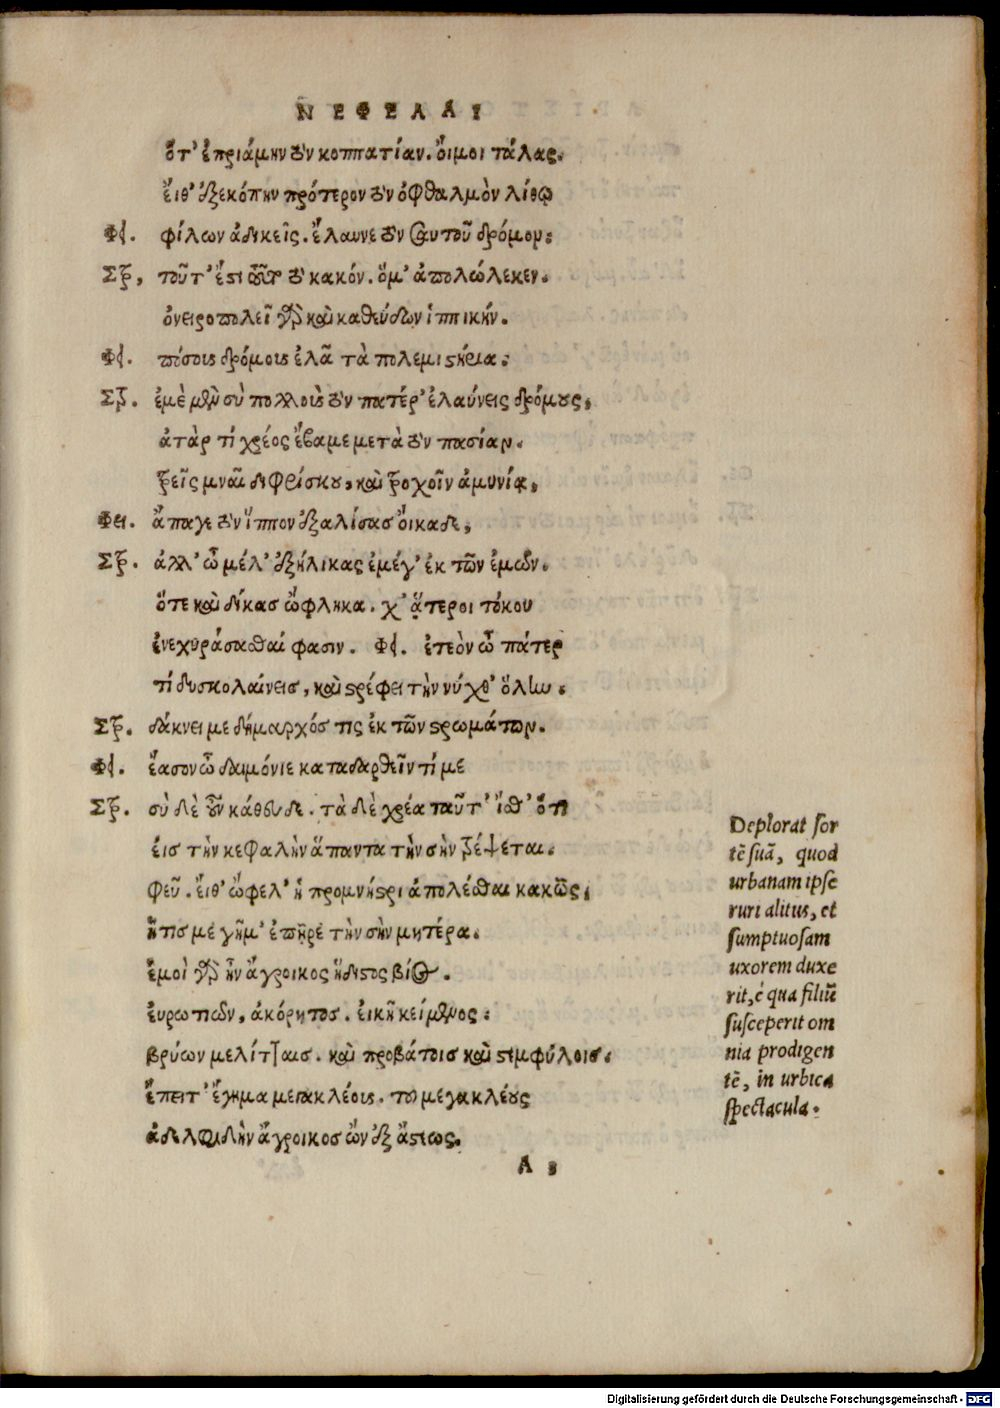 ΝΕΦΕΛΑΙ
ὅτ' ἐπριάμην τὸν κοππατίαν. οἴμοι τάλας.
εἴθ' ἐξεκόπην πρότερον τὸν ὀφθαλμὸν λίθῳ
Φἰ. φίλων ἀδικεῖς. ἔλαυνε τὸν σαυτοῦ δρόμον.
Στρ, τοῦτ' ἔστι τοῦτο τὸ κακόν. ὅ μ' ἀπολώλεκεν.
ὀνειροπολεῖ γὰρ καὶ καθεύδων ἱππικήν.
Φἰ. πόσους δρόμους ἐλᾷ τὰ πολεμιστήρια;
Στρ. ἐμὲ μὲν σὺ πολλοὺς τὸν πατέρ' ἐλαύνεις δρόμους,
ἀτὰρ τί χρέος ἔβα με μετὰ τὸν πασίαν.
τρεῖς μναῖ διφρίσκου, καὶ τροχοῖν ἀμυνίᾳ,
Φει. ἄπαγε τὸν ἵππον ἐξαλίσας οἴκαδε,
Στρ. ἀλλ' ὦ μέλ' ἐξήλικας ἐμέγ' ἐκ τῶν ἐμῶν.
ὅτε καὶ δίκας ὤφληκα. χ' ἅτεροι τόκου
ἐνεχυράσασθαί φασιν. Φἰ. ἐτεὸν ὦ πάτερ
τί δυσκολαίνεις, καὶ στρέφει τὴν νύχθ' ὅλην.
Στρ. δάκνει με δήμαρχός τις ἐκ τῶν στρωμάτων.
Φἰ. ἔασον ὦ δαιμόνιε καταδαρθεῖν τί με
Στρ. σὺ δὲ οὖν κάθευδε. τὰ δὲ χρέα ταῦτ' ἴσθ' ὅτι
εἰς τὴν κεφαλὴν ἅπαντα τὴν σὴν τρέψεται.
φεῦ. εἴθ' ὤφελ' ἡ προμνήστρι ἀπολέσθαι κακῶς,
ἥτις με γῆμ' ἐπῆρε τὴν σὴν μητέρα.
ἐμοὶ γὰρ ἦν ἄγροικος ἥδιστος βίος.
ἐυρωτιῶν, ἀκόρητος. ἐικῆ κείμενος.
βρύων μελίτταις. καὶ προβάτοις καὶ στεμφύλοις.
ἔπειτ' ἔγημα μεγακλέους. τοῦ μεγακλέους
ἀδελφιδὴν ἄγροικος ὢν ἐξ ἄστεως.
Α 3
Deplorat sor
tē suā, quod
urbanam ipse
ruri alitus, et
sumptuosam
uxorem duxe
rit, è qua filiū
susceperit om
nia prodigen
tē, in urbica
spectacula.
Digitalisierung gefördert durch die Deutsche Forschungsgemeinschaft - DFG